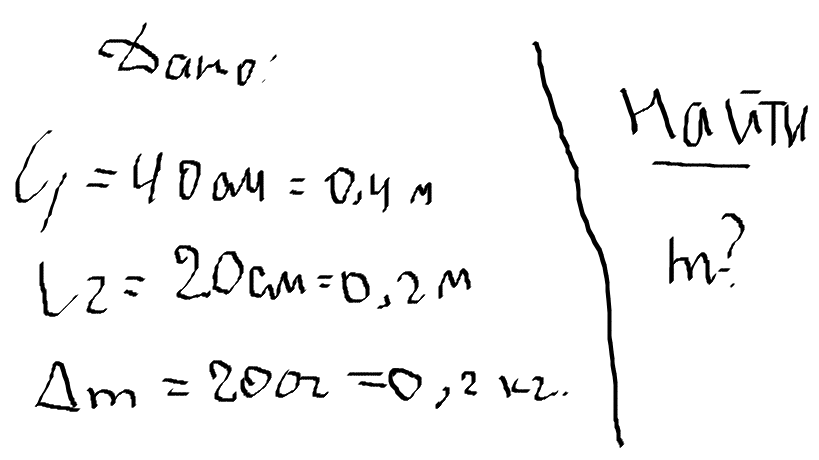 Дано:
L1 = 40см = 0,4 м
L2 = 20см = 0,2 м
Δm = 200г = 0,2 кг.
Найти
m?